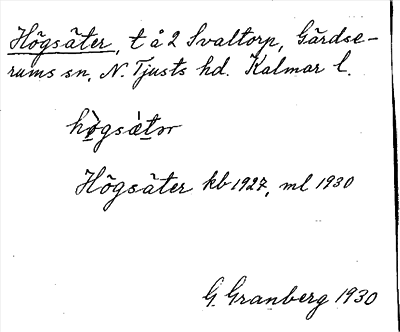 Högsäter, t å 2 Svaltorp, Gärdse-
rums sn, N. Tjusts hd. Kalmar l.
Högsäter kb 1927, ml 1930
G. Granberg 1930